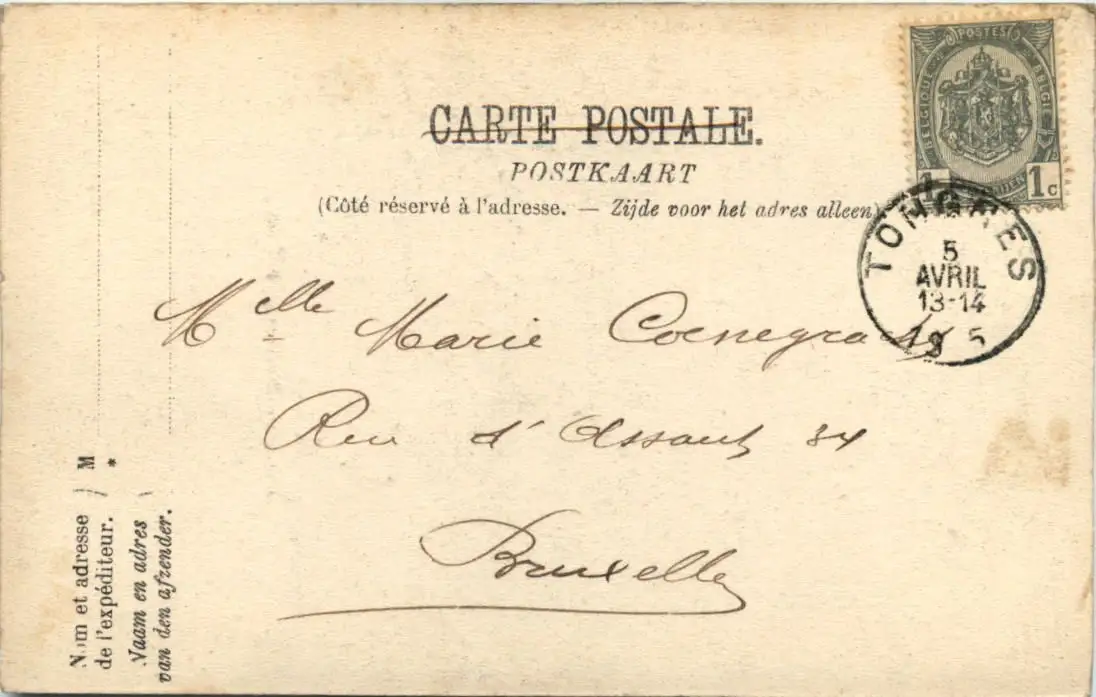 POSTES
BELGIQUE BELGIË
1 1c
CARTE POSTALE.
POSTKAART
(Côté réservé à l'adresse. — Zijde voor het adres alleen)
TONGRES
5
AVRIL
13-14
19 5
Melle Marie
Rue d'Assaut 34
Bruxelles
M
*
Nom et adresse
de l'expéditeur.
Naam en adres
van den afzender.